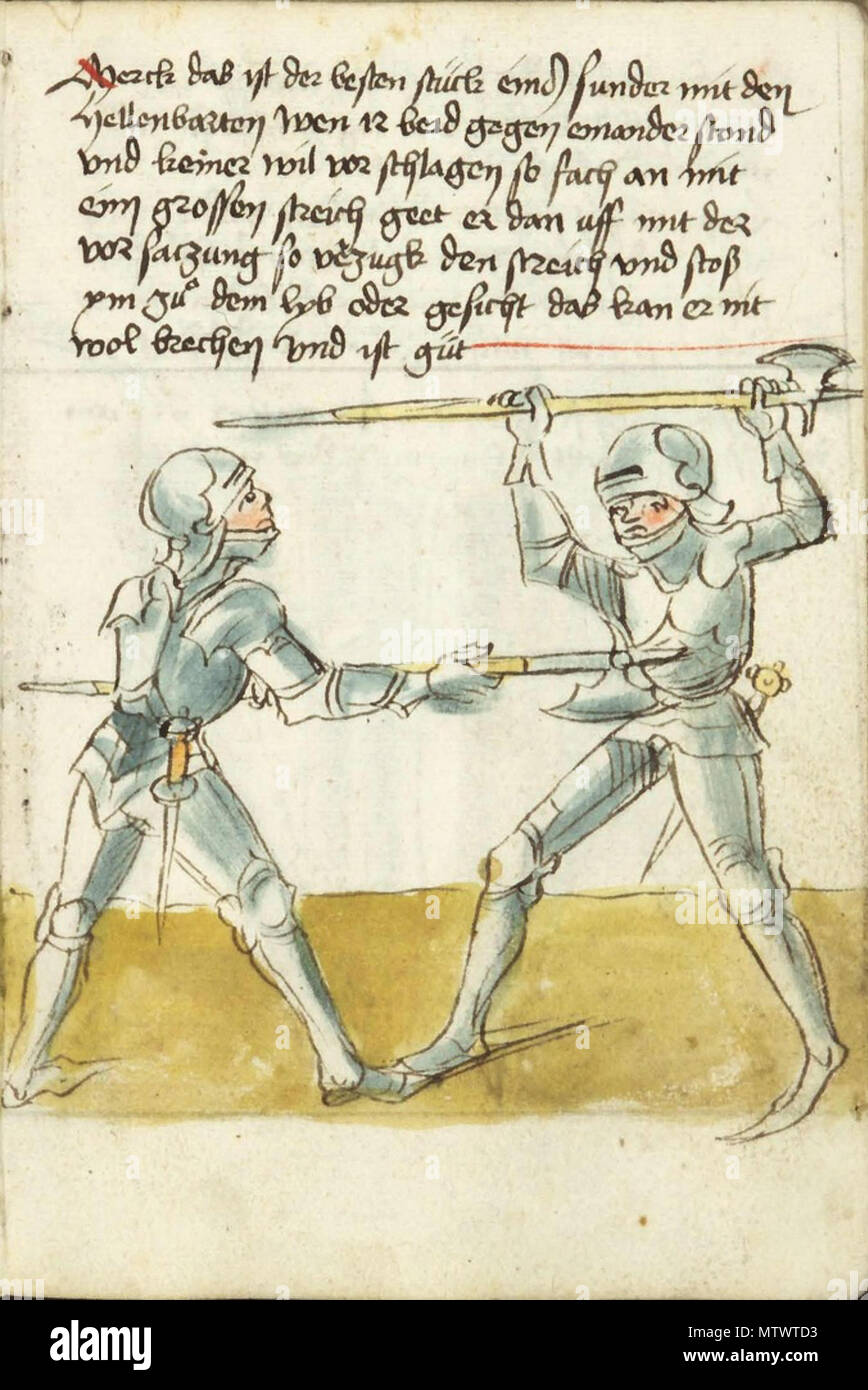 Merck das ist der besten stück einß sunder mit den
Hellenbarten wen ir beid gegen einander stond
vnd keiner wil vor schlagen so fach an mit
eim grossen streich geet er dan uff mit der
vor saczung so verzugk den streich vnd stoß
ym zuͦ dem lyb oder gesicht das kan er nit
wol brechen vnd ist güt
alamy
Image ID: MTWTD3
www.alamy.com